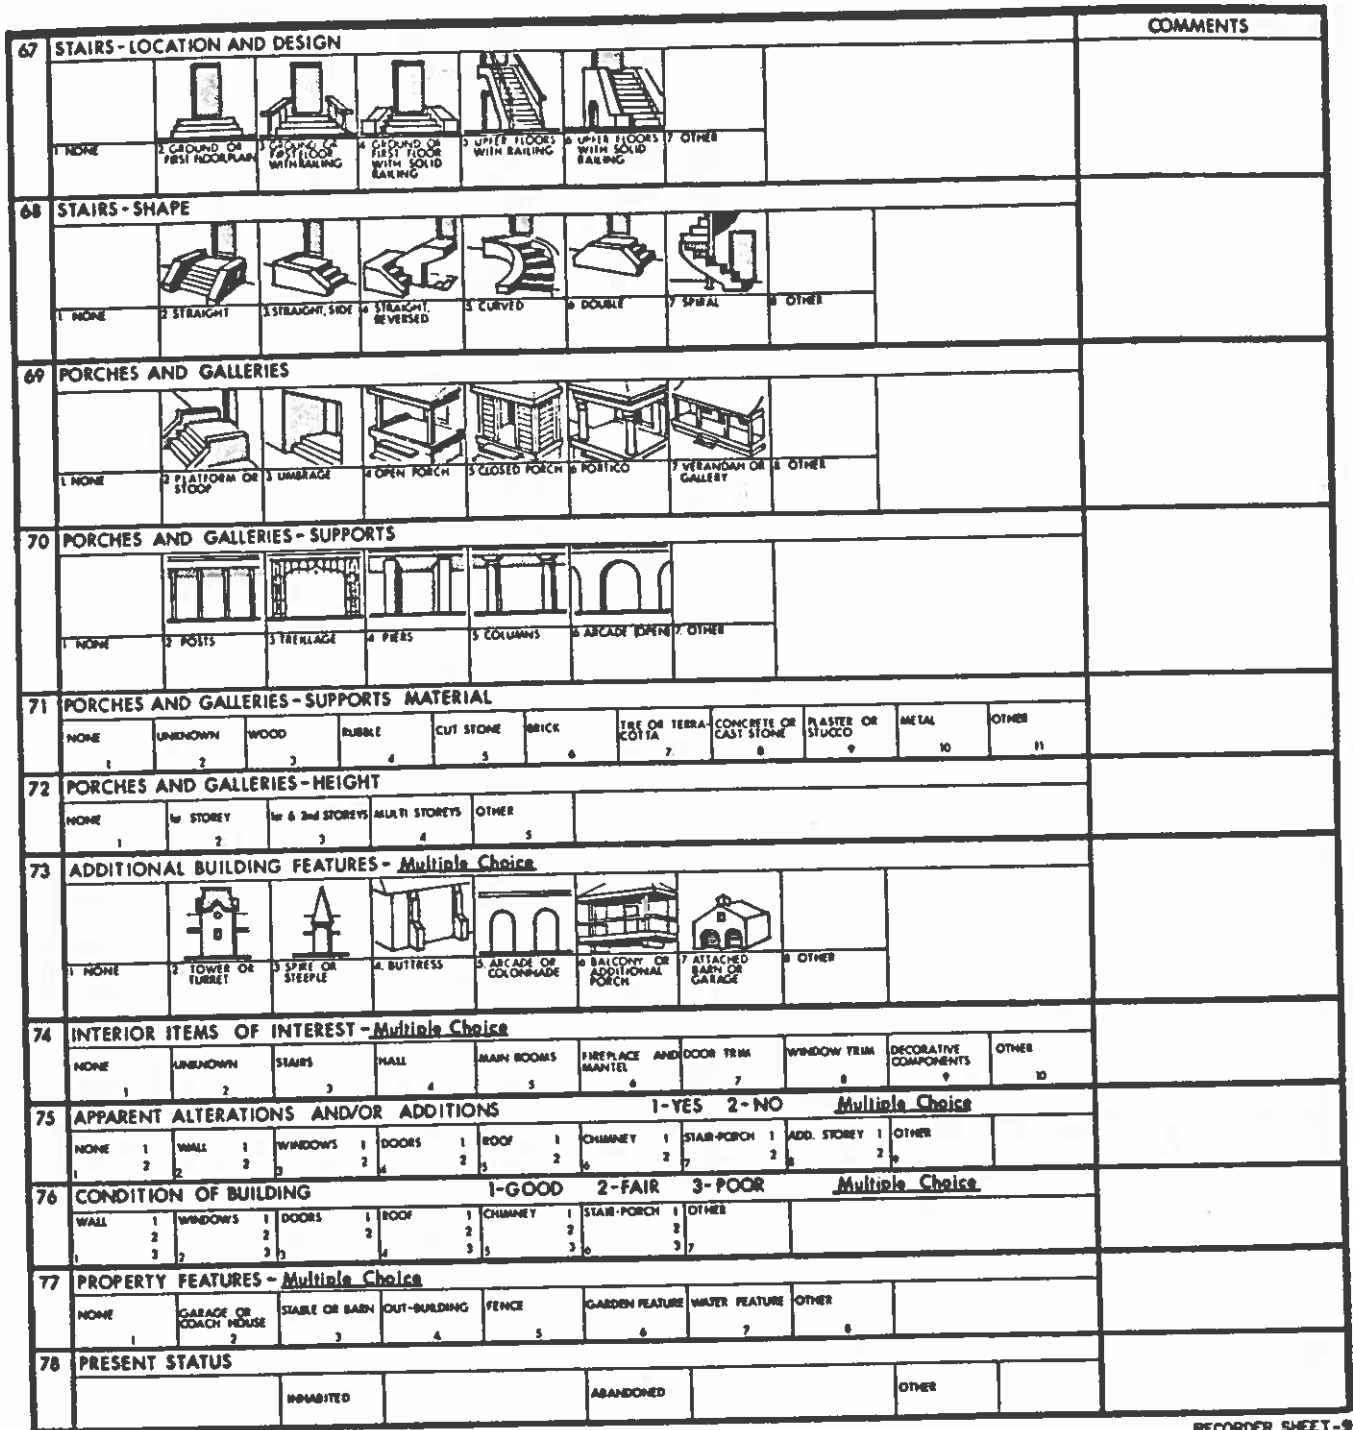 COMMENTS
67 STAIRS - LOCATION AND DESIGN
1 NONE
2 GROUND OR FIRST FLOOR, PLAIN
3 GROUND OR FIRST FLOOR WITH RAILING
4 GROUND OR FIRST FLOOR WITH SOLID RAILING
5 UPPER FLOORS WITH RAILING
6 UPPER FLOORS WITH SOLID RAILING
7 OTHER
68 STAIRS - SHAPE
1 NONE
2 STRAIGHT
3 STRAIGHT, SIDE
4 STRAIGHT, REVERSED
5 CURVED
6 DOUBLE
7 SPIRAL
8 OTHER
69 PORCHES AND GALLERIES
1 NONE
2 PLATFORM OR STOOP
3 UMBRAGE
4 OPEN PORCH
5 CLOSED PORCH
6 PORTICO
7 VERANDAH OR GALLERY
8 OTHER
70 PORCHES AND GALLERIES - SUPPORTS
1 NONE
2 POSTS
3 TREILLAGE
4 PIERS
5 COLUMNS
6 ARCADE (OPEN)
7 OTHER
71 PORCHES AND GALLERIES - SUPPORTS MATERIAL
NONE 1
UNKNOWN 2
WOOD 3
RUBBLE 4
CUT STONE 5
BRICK 6
TILE OR TERRA-COTTA 7
CONCRETE OR CAST STONE 8
PLASTER OR STUCCO 9
METAL 10
OTHER 11
72 PORCHES AND GALLERIES - HEIGHT
NONE 1
1st STOREY 2
1st & 2nd STOREYS 3
MULTI STOREYS 4
OTHER 5
73 ADDITIONAL BUILDING FEATURES - Multiple Choice
1 NONE
2 TOWER OR TURRET
3 SPIRE OR STEEPLE
4. BUTTRESS
5. ARCADE OR COLONNADE
6 BALCONY OR ADDITIONAL PORCH
7 ATTACHED BARN OR GARAGE
8 OTHER
74 INTERIOR ITEMS OF INTEREST - Multiple Choice
NONE 1
UNKNOWN 2
STAIRS 3
HALL 4
MAIN ROOMS 5
FIREPLACE AND MANTEL 6
DOOR TRIM 7
WINDOW TRIM 8
DECORATIVE COMPONENTS 9
OTHER 10
75 APPARENT ALTERATIONS AND/OR ADDITIONS 1-YES 2-NO Multiple Choice
NONE 1 2 1
WALL 1 2 2
WINDOWS 1 2 3
DOORS 1 2 4
ROOF 1 2 5
CHIMNEY 1 2 6
STAIR-PORCH 1 2 7
ADD. STOREY 1 2 8
OTHER 9
76 CONDITION OF BUILDING 1-GOOD 2-FAIR 3-POOR Multiple Choice
WALL 1 2 3 1
WINDOWS 1 2 3 2
DOORS 1 2 3
ROOF 1 2 3 4
CHIMNEY 1 2 3 5
STAIR-PORCH 1 2 3 6
OTHER 7
77 PROPERTY FEATURES - Multiple Choice
NONE 1
GARAGE OR COACH HOUSE 2
STABLE OR BARN 3
OUT-BUILDING 4
FENCE 5
GARDEN FEATURE 6
WATER FEATURE 7
OTHER 8
78 PRESENT STATUS
INHABITED
ABANDONED
OTHER
RECORDER SHEET-9